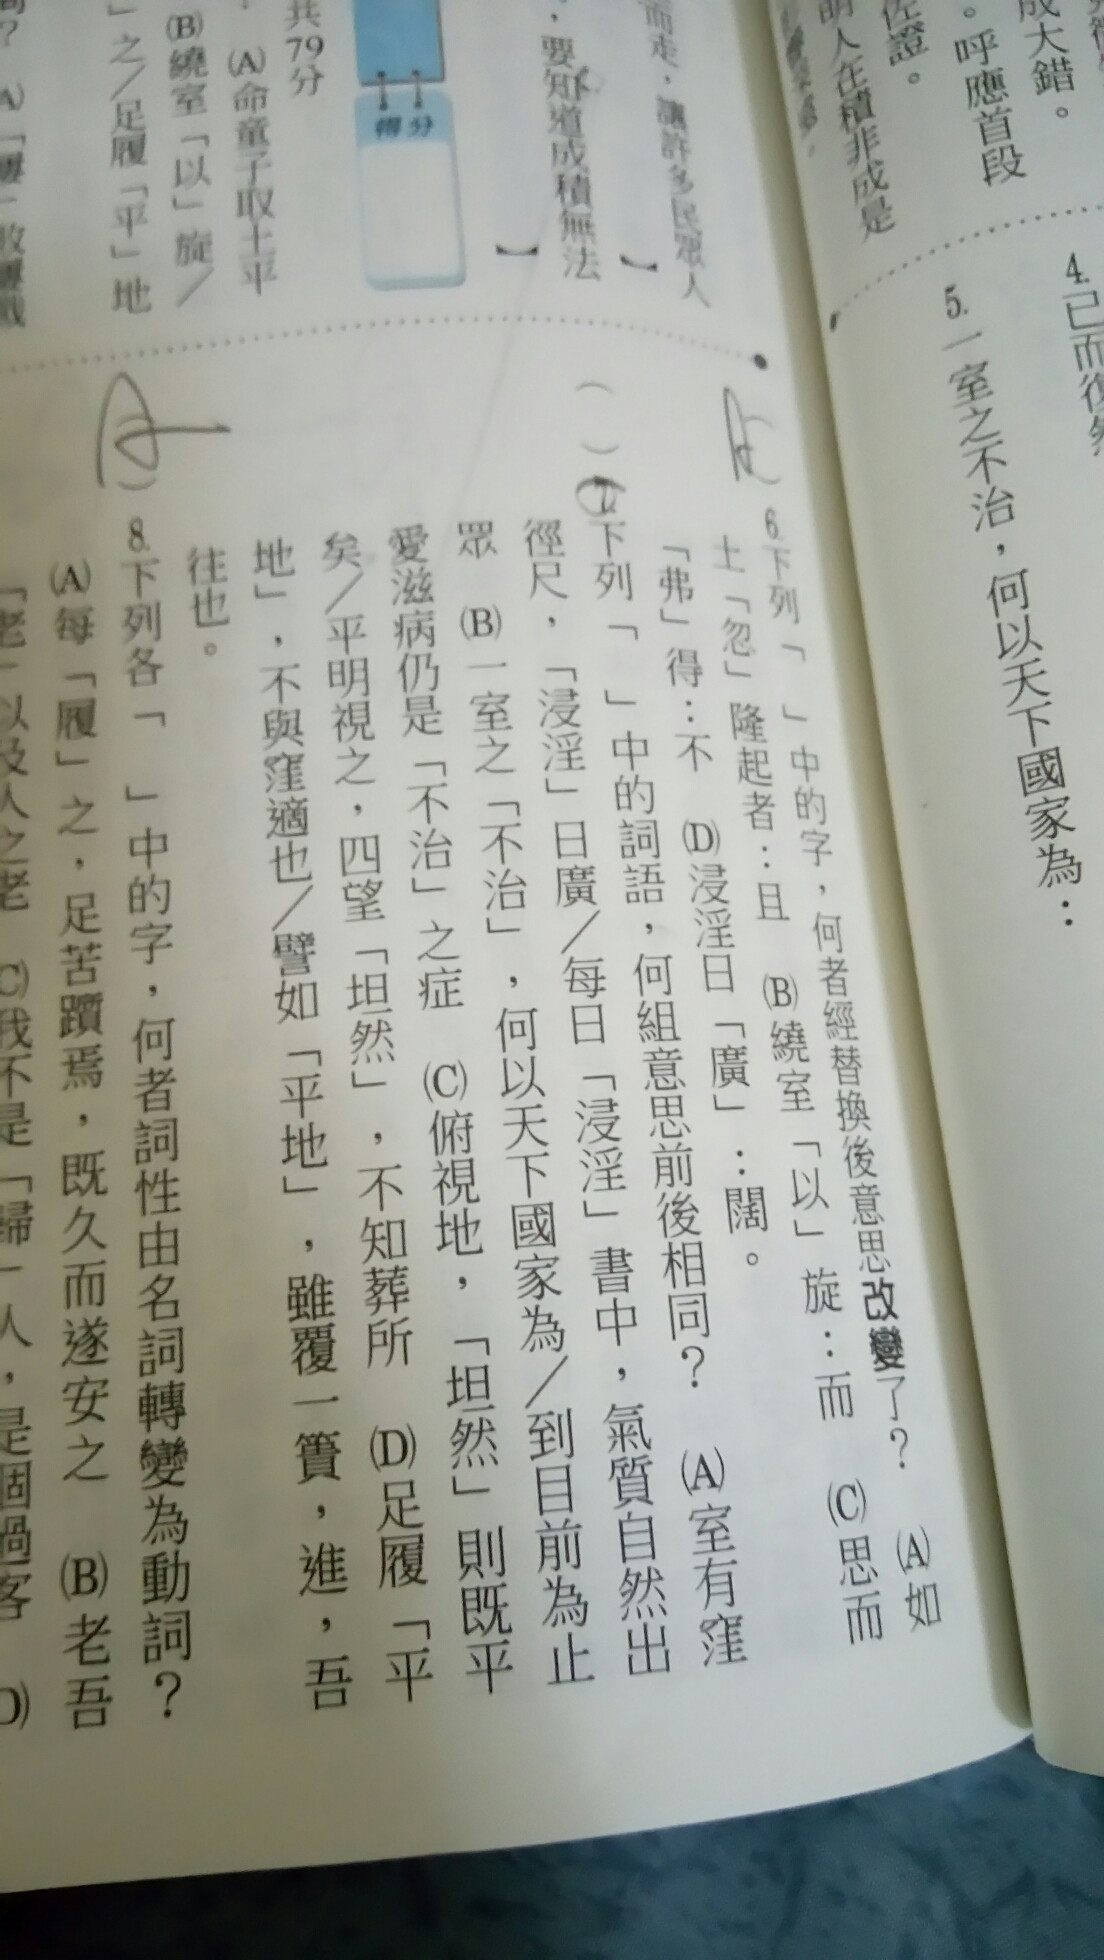 4.已而復然
5.一室之不治，何以天下國家為：
成大錯。
。呼應首段
佐證。
明人在積非成是
而走，讓許多民眾人
】
，要知道成積無法
】
得分
共79分
(A)命童子取土平
(B)繞室「以」旋／
」之／足履「平」地
6.下列「　」中的字，何者經替換後意思改變了？　(A)如
土「忽」隆起者：且　(B)繞室「以」旋：而　(C)思而
「弗」得：不　(D)浸淫日「廣」：闊。
(　)7.下列「　」中的詞語，何組意思前後相同？　(A)室有窪
徑尺，「浸淫」日廣／每日「浸淫」書中，氣質自然出
眾　(B)一室之「不治」，何以天下國家為／到目前為止
愛滋病仍是「不治」之症　(C)俯視地，「坦然」則既平
矣／平明視之，四望「坦然」，不知葬所　(D)足履「平
地」，不與窪適也／譬如「平地」，雖覆一簣，進，吾
往也。
A)8.下列各「　」中的字，何者詞性由名詞轉變為動詞？
(A)每「履」之，足苦躓焉，既久而遂安之　(B)老吾
「老」以及人之老　(C)我不是「歸」人，是個過客　(D)